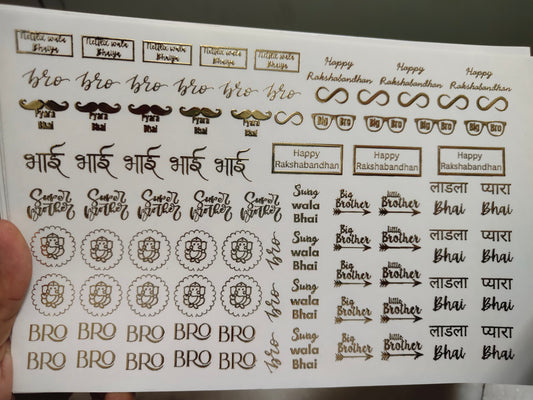 Netflix wala Netflix wala Netflix wala Netflix wala Netflix wala
Bhaiya Bhaiya Bhaiya Bhaiya Bhaiya
Happy Happy Happy
Rakshabandhan Rakshabandhan Rakshabandhan
bro bro bro bro bro bro
Pyara Pyara Pyara Pyara Pyara
Bhai Bhai Bhai Bhai Bhai
Big Bro Big Bro Big Bro Big Bro
भाई भाई भाई भाई भाई
Happy Happy Happy
Rakshabandhan Rakshabandhan Rakshabandhan
Super Super Super Super Super
Brother Brother Brother Brother Brother
Sung Big little लाडला प्यारा
wala Brother Brother Bhai Bhai
Bhai
bro
Sung Big little लाडला प्यारा
wala Brother Brother Bhai Bhai
Bhai
bro
Sung Big little लाडला प्यारा
wala Brother Brother Bhai Bhai
Bhai
bro
Sung Big little लाडला प्यारा
wala Brother Brother Bhai Bhai
Bhai
BRO BRO BRO BRO BRO
BRO BRO BRO BRO BRO